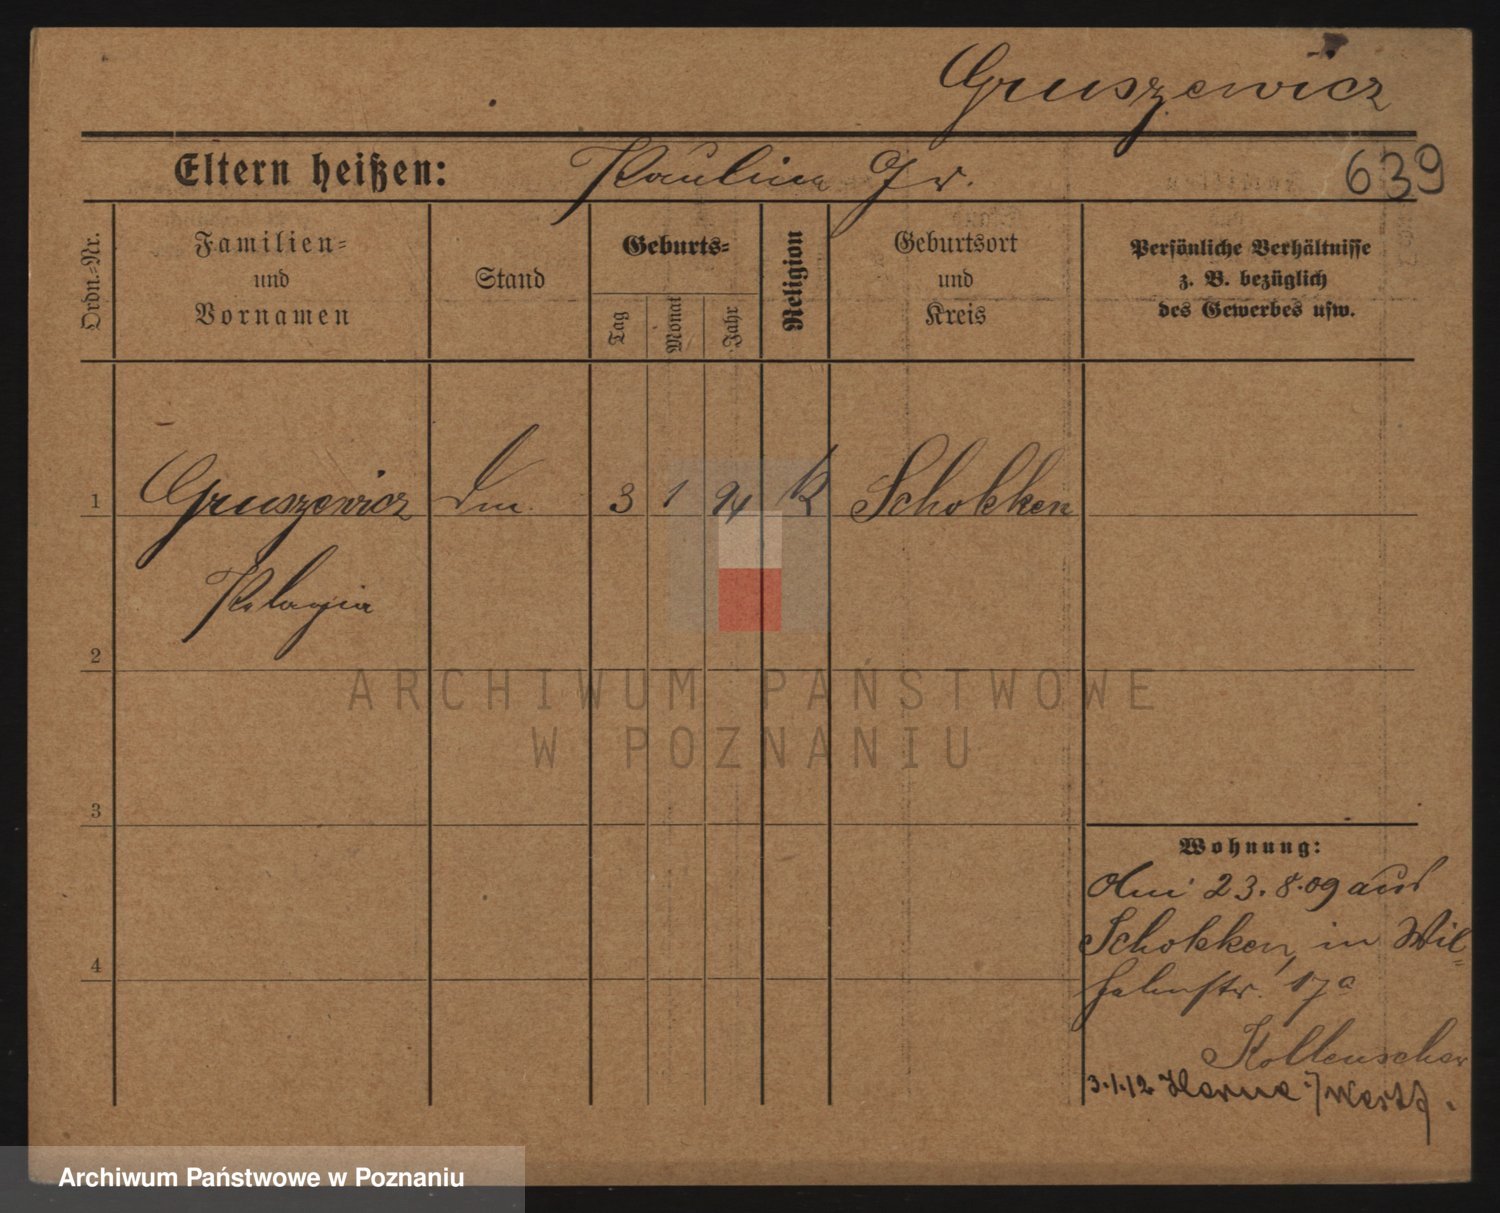 Gruszewicz
Eltern heißen: Paulina Gr.
639
Ordn.=Nr.
Familien=
und
Vornamen
Stand
Geburts=
Tag
Monat
Jahr
Religion
Geburtsort
und
Kreis
Persönliche Verhältnisse
z. B. bezüglich
des Gewerbes usw.
1 Gruszewicz 3 1 94 K Schokken
Pelagia
2
3
4
Wohnung:
23.8.09 aus
Schokken, in Wil=
helmstr. 17a
Kollenscher
3.1.12 Herne
ARCHIWUM PAŃSTWOWE
W POZNANIU
Archiwum Państwowe w Poznaniu